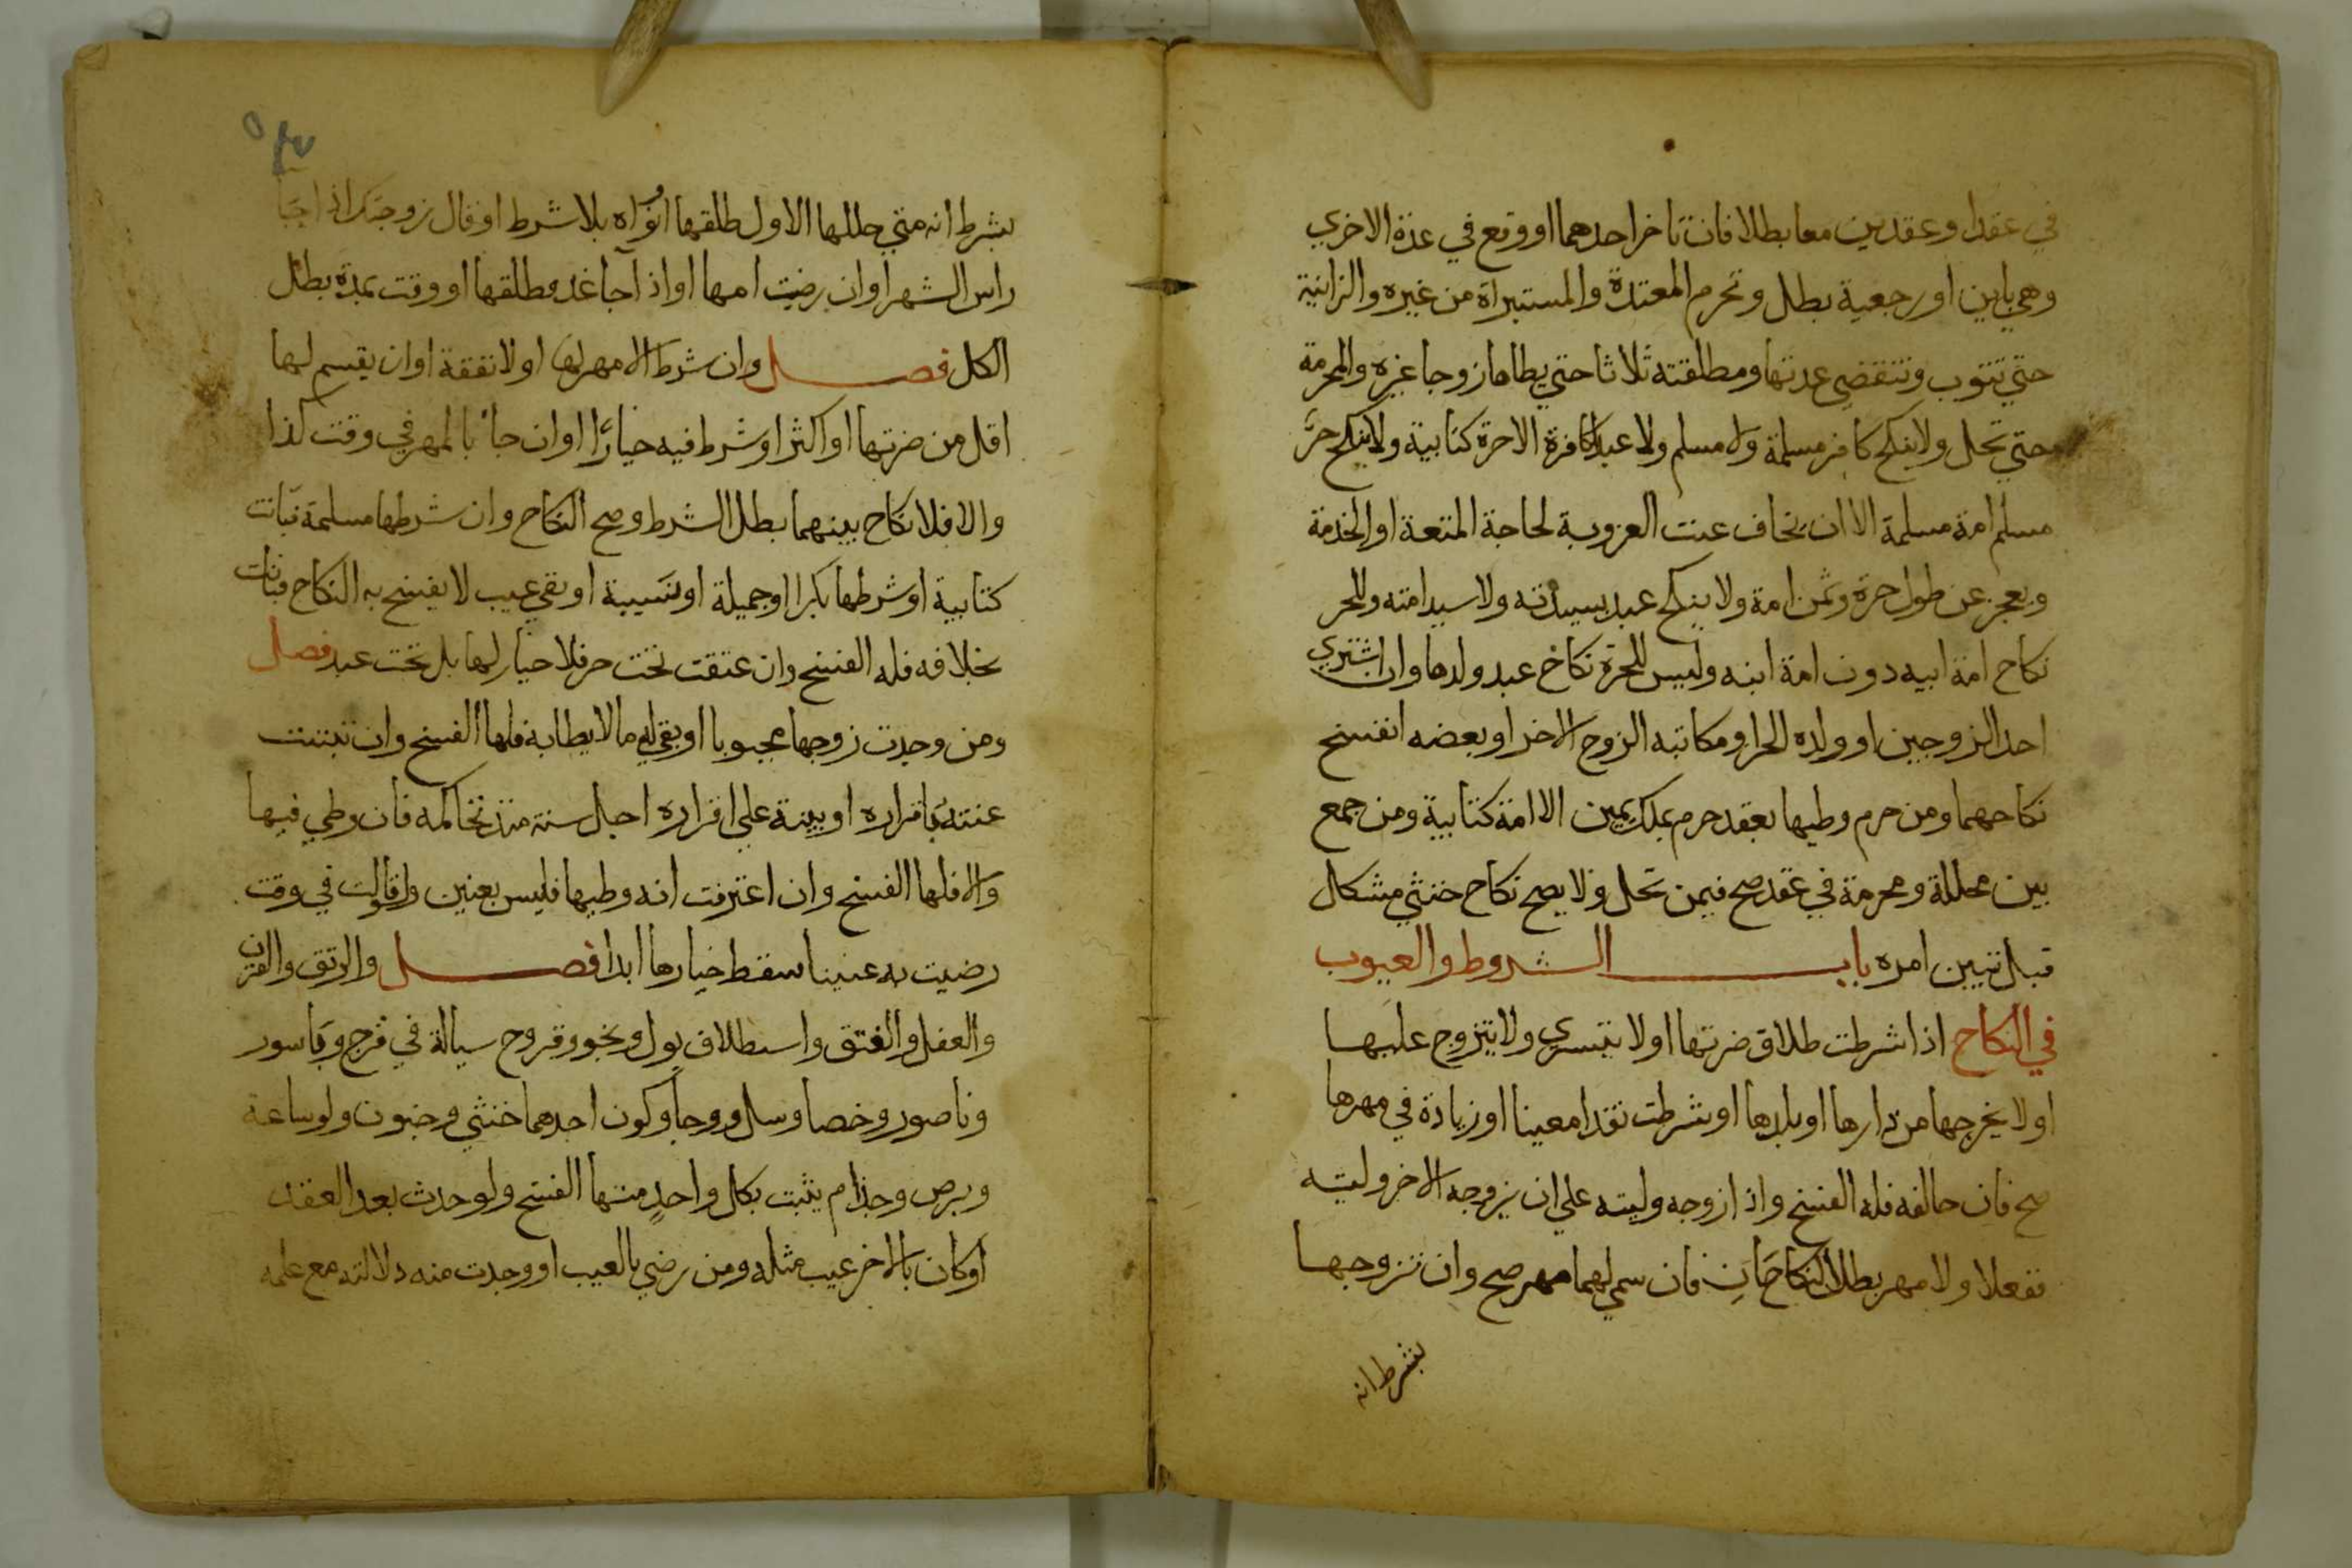 في عقد او عقدين معا بطلا فان تاخر احدهما او وقع في عدة الاخري
وهي باين او رجعية بطل وتحرم المعتدة والمستبراة من غيره والزانية
حتي تتوب وتنقضي عدتها ومطلقته ثلاثا حتي يطاها زوجا غيره والمحرمة
حتي تحل ولا ينكح كافر مسلمة ولا مسلم ولا عبد كافرة الا حرة كتابية ولا ينكح حر
مسلم امة مسلمة الا ان يخاف عنت العزوبة لحاجة المتعة او الخدمة
ويعجز عن طول حرة وثمن امة ولا ينكح عبد سيدته ولا سيد امته وللحر
نكاح امة ابيه دون امة ابنه وليس للحرة نكاح عبد ولدها وان اشتري
احد الزوجين او ولده الحر او مكاتبه الزوج الاخر او بعضه انفسخ
نكاحهما ومن حرم وطيها بعقد حرم بملك يمين الا امة كتابية ومن جمع
بين محللة ومحرمة في عقد صح فيمن تحل ولا يصح نكاح خنثي مشكل
قبل تبين امره باب الشروط والعيوب
في النكاح اذا شرطت طلاق ضرتها او لا يتسري ولا يتزوج عليها
او لا يخرجها من دارها او بلدها او شرطت نقدا معينا او زيادة في مهرها
صح فان خالفه فله الفسخ واذا زوجه وليته علي ان يزوجه الاخر وليته
ففعلا ولا مهر بطلا النكاحان فان سمي لهما مهر صح وان تزوجها
بشرط انه
بشرط انه متي حللها الاول طلقها او نواه بلا شرط او قال زوجتك اذا جا
راس الشهر او ان رضيت امها او اذا جا غد فطلقها او وقت بمدة بطل
الكل فصل وان شرط الا مهر لها او لا نفقة او ان يقسم لها
اقل من ضرتها او اكثر او شرط فيه خيارا او ان جا بالمهر في وقت كذا
والا فلا نكاح بينهما بطل الشرط وصح النكاح وان شرطها مسلمة فبانت
كتابية او شرطها بكرا او جميلة او نسيبة او بقي عيب لا يفسخ به النكاح فبانت
بخلافه فله الفسخ وان عتقت تحت حر فلا خيار لها بل تحت عبد فصل
ومن وجدت زوجها مجبوبا او بقي له ما لا يطا به فلها الفسخ وان ثبتت
عنته باقراره او بينة علي اقراره اجل سنة منذ تحاكمه فان وطي فيها
والا فلها الفسخ وان اعترفت انه وطيها فليس بعنين ولو قالت في وقت
رضيت به عنينا سقط خيارها ابدا فصل والرتق والقرن
والعفل والفتق واستطلاق بول ونجو وقروح سيالة في فرج وباسور
وناصور وخصا وسل ووجا وكون احدهما خنثي وجنون ولو ساعة
وبرص وجذام يثبت بكل واحد منها الفسخ ولو حدث بعد العقد
او كان بالاخر عيب مثله ومن رضي بالعيب او وجدت منه دلالته مع علمه